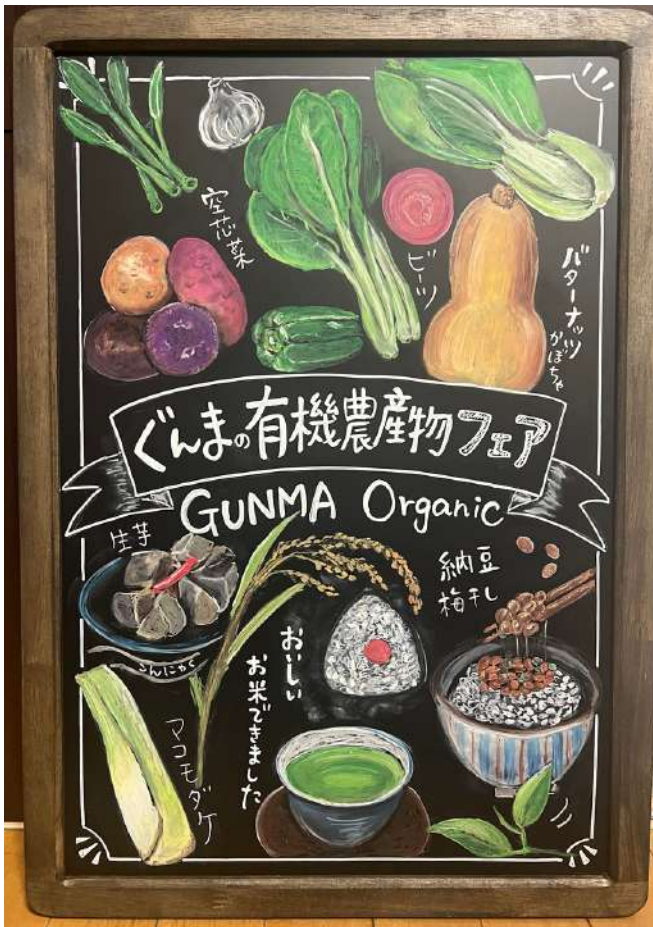 空芯菜
ビーツ
バターナッツ
かぼちゃ
ぐんまの有機農産物フェア
GUNMA Organic
生芋
こんにゃく
納豆
梅干し
おいしい
お米できました
マコモダケ